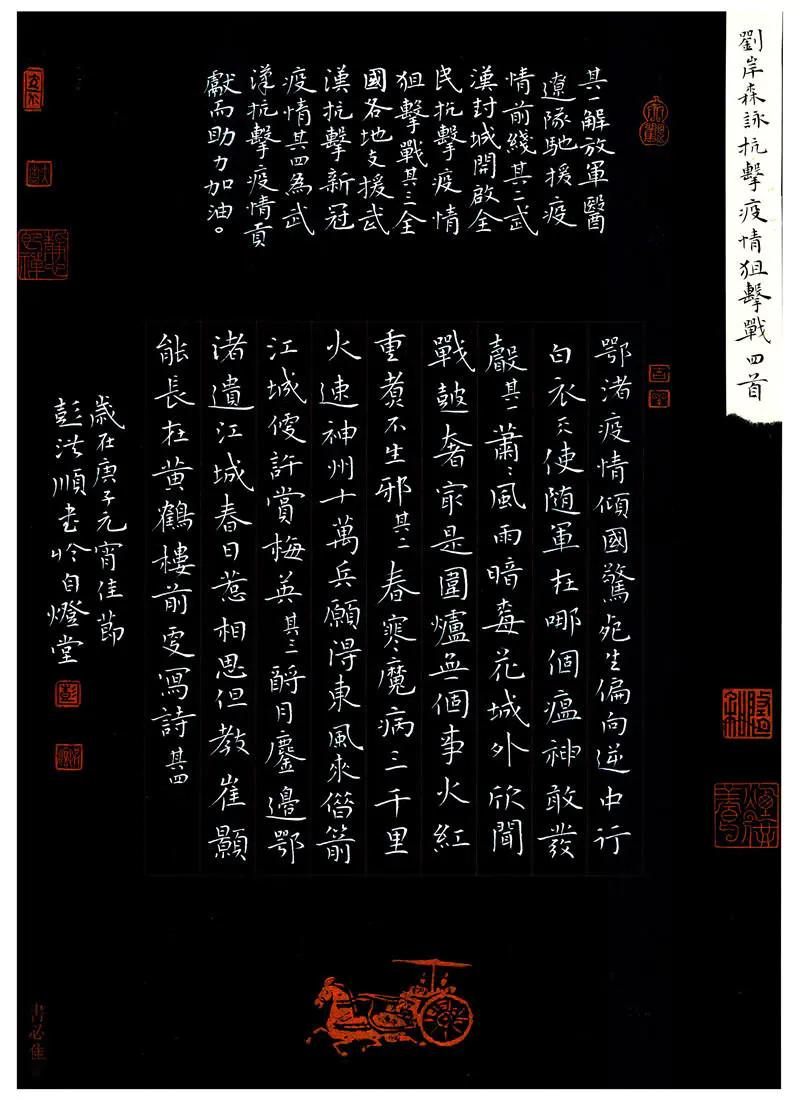 劉岸森詠抗擊疫情狙擊戰四首
其一解放軍醫
遼隊馳援疫
情前綫其二武
漢封城開啟全
民抗擊疫情
狙擊戰其三全
國各地支援武
漢抗擊新冠
疫情其四為武
漢抗擊疫情貢
獻而助力加油。
鄂渚疫情傾國驚死生偏向逆中行
白衣天使随軍在哪個瘟神敢發
聲其一蕭〻風雨暗毒花城外欣聞
戰鼓奢家是圍爐無個事火紅
重煮不生邪其二春寒魔病三千里
火速神州十萬兵願得東風來借箭
江城便許賞梅英其三酹月鏖邊鄂
渚遺江城春日惹相思但教崔顥
能長在黃鶴樓前更寫詩其四
歲在庚子元宵佳節
彭洪順書於自燈堂